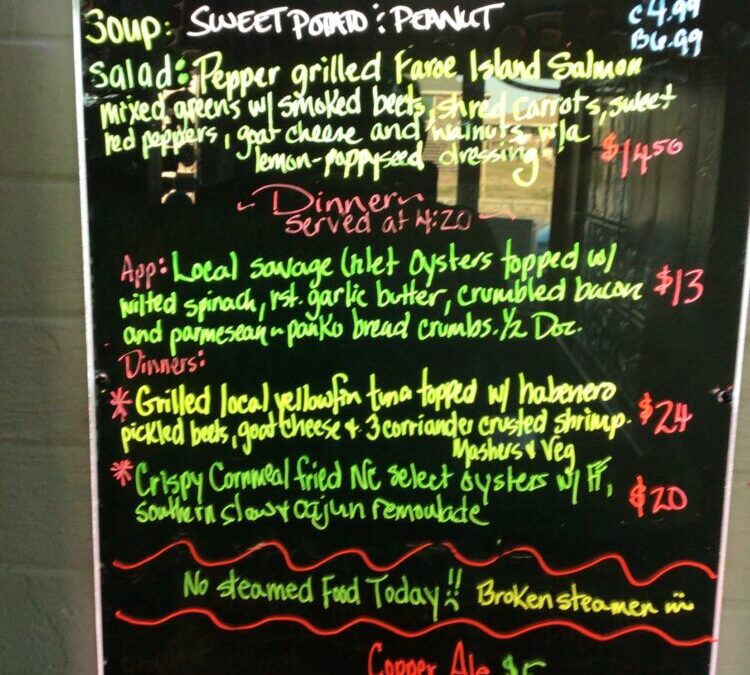 Soup: SWEET POTATO : PEANUT
C 4.99
B 6.99
Salad: Pepper grilled Faroe Island Salmon
mixed greens w/ smoked beets, shred carrots, sweet
red peppers, goat cheese and walnuts w/a
lemon-poppyseed dressing. $14.50
~ Dinner ~
Served at 4:20
App: Local savage Inlet Oysters topped w/
wilted spinach, rst. garlic butter, crumbled bacon $13
and parmesean-panko bread crumbs. 1/2 Doz.
Dinners:
* Grilled local yellowfin tuna topped w/ habenero
pickled beets, goat cheese + 3 corriander crusted shrimp. $24
Mashers + Veg
* Crispy Cornmeal fried NC select oysters w/ FF,
southern slaw + cajun remoulade $20
No steamed Food Today!! Broken steamer
Copper Ale $5